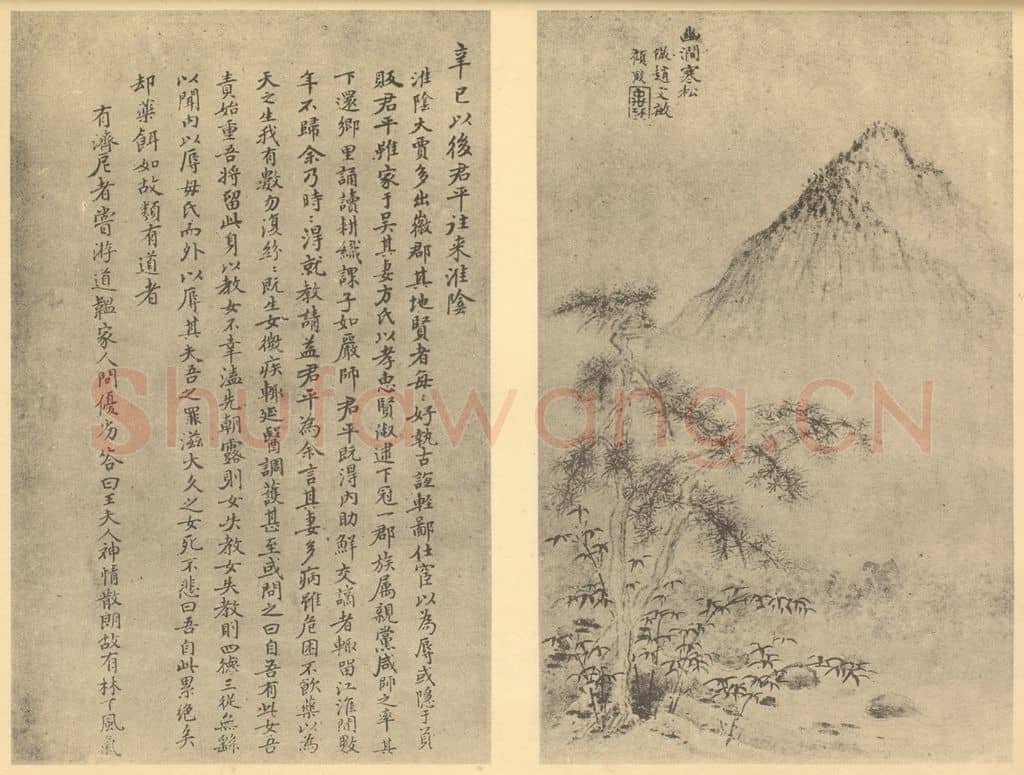 幽澗寒松
儗趙文敏
穎殷
辛巳以後君平往来淮陰
淮陰大賈多出徽郡其地賢者每〻好執古誼輕鄙仕宦以為辱或隱于負
販君平雖家于吴其妻方氏以孝惠賢淑逮下冠一郡族属親黨咸師之率其
下還鄉里誦讀耕織課子如嚴師君平既得內助鮮交謫者輙留江淮間數
年不歸余乃時〻淂就教請益君平為余言其妻多病雖危困不飲藥以為
天之生我有數勿復紛〻既生女微疾輙延醫調護甚至或問之曰自吾有此女吾
責始重吾将留此身以教女不幸溘先朝露則女失教女失教則四德三従無繇
以聞内以辱母氏而外以辱其夫吾之罪滋大久之女死不悲曰吾自此累絶矣
却藥餌如故類有道者
有濟尼者嘗游道韞家人問優劣答曰王夫人神情散朗故有林下風氣
Shufawang.CN